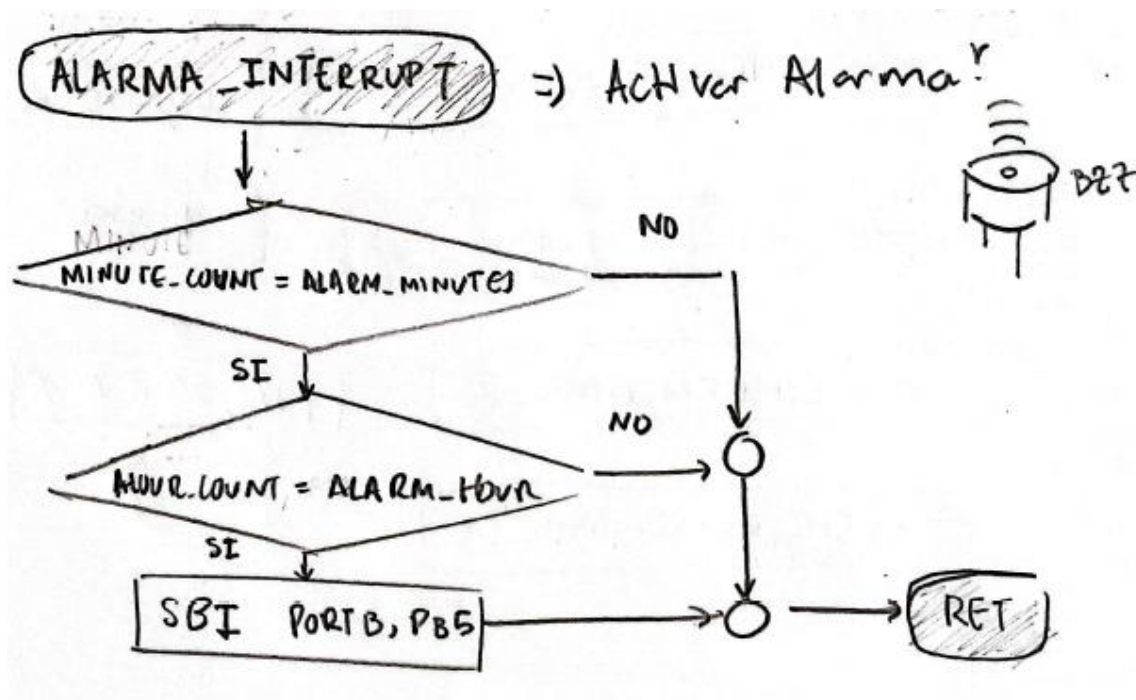 ALARMA_INTERRUPT => Activar Alarma?
BZZ
MINUTE
NO
MINUTE_COUNT = ALARM_MINUTES
SI
NO
HOUR_COUNT = ALARM_HOUR
SI
SBI PORTB, PB5
RET